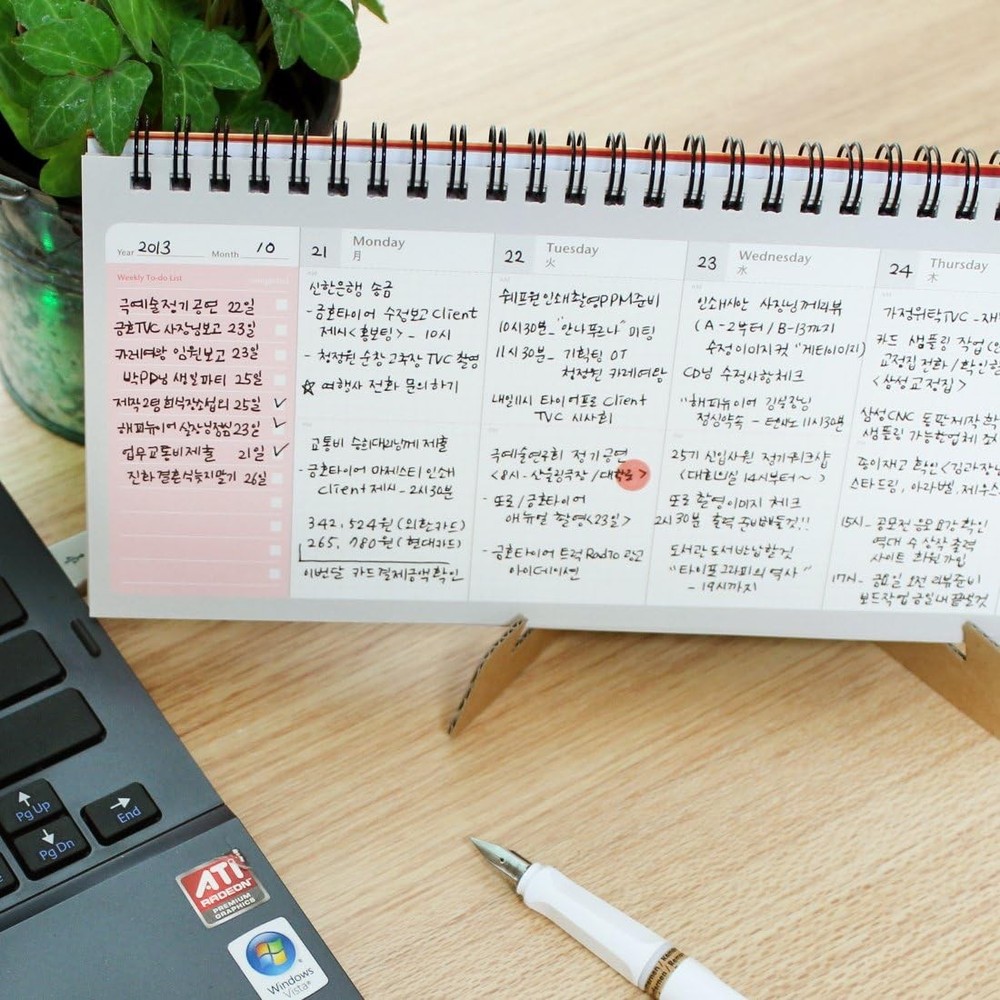 Year 2013 Month 10
Weekly To-do List
극예술정기공연 22일
금호TVC 사장님보고 23일
카레여왕 임원보고 23일
박PD님 생일파티 25일
25일
해피뉴어 실장님점심 23일
업무교통비제출 21일
진하결혼식늦지말기 26일
21 Monday
月
신한은행 송금
- 금호타이어 수정보고 Client
제시 <홍보팀> - 10시
- 청정원 순창고추장 TVC 촬영
☆ 여행사 전화 문의하기
교통비 승희대리님께 제출
- 금호타이어 마제스티 인쇄
Client 제시 - 2시30분
342,524원 (외환카드)
265,780원 (현대카드)
이번달 카드결제금액확인
22 Tuesday
火
쉐프원 인쇄촬영PPM준비
10시30분 - "안나푸르나" 미팅
11시30분 - 기획팀 OT
청정원 카레여왕
내일11시 타이어프로 Client
TVC 시사회
극예술연구회 정기공연
<8시 - 산울림극장 / 대학로>
- 또로 / 금호타이어
애뉴얼 촬영 <23일>
- 금호타이어 트럭 Radio 광고
아이데이션
23 Wednesday
水
인쇄시안 사장님께리뷰
(A-2부터 / B-13까지
수정이미지컷 "게티이미지)
CD님 수정사항체크
"해피뉴이어 김실장님
점심약속 - 11시30분
25기 신입사원 정기워크샵
(대회의실 14시부터~)
또로 촬영이미지 체크
2시30분 출력 준비해둘것!!
도서관도서반납할것
"타이포그라피의 역사"
- 19시까지
24 Thursday
木
가정위탁TVC -
카드 샘플링 작업
교정집 전화 / 확인
<삼성교정집>
삼성CNC 동판제작
샘플링 가능한업체
종이재고 확인 <김과장님
스타드림, 아라벨, 제우스
15시 - 공모전 응모요강확인
역대 수상작 출력
사이트 회원가입
17시 - 금요일 오전 리뷰준비
보드작업 금일내 끝낼것
Pg Up
Pg Dn
End
ATI
RADEON
PREMIUM
GRAPHICS
Windows
Vista